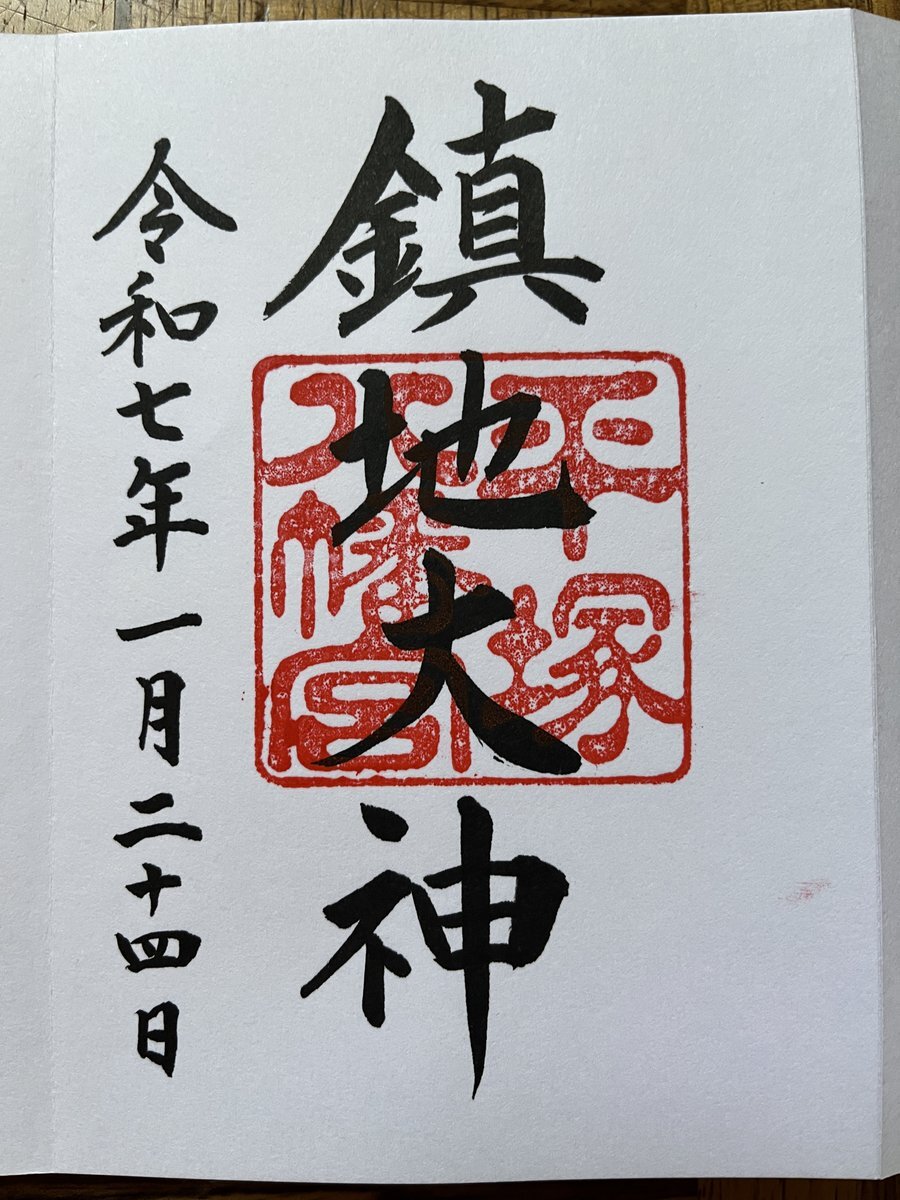 鎮地大神
平塚八幡宮
令和七年一月二十四日